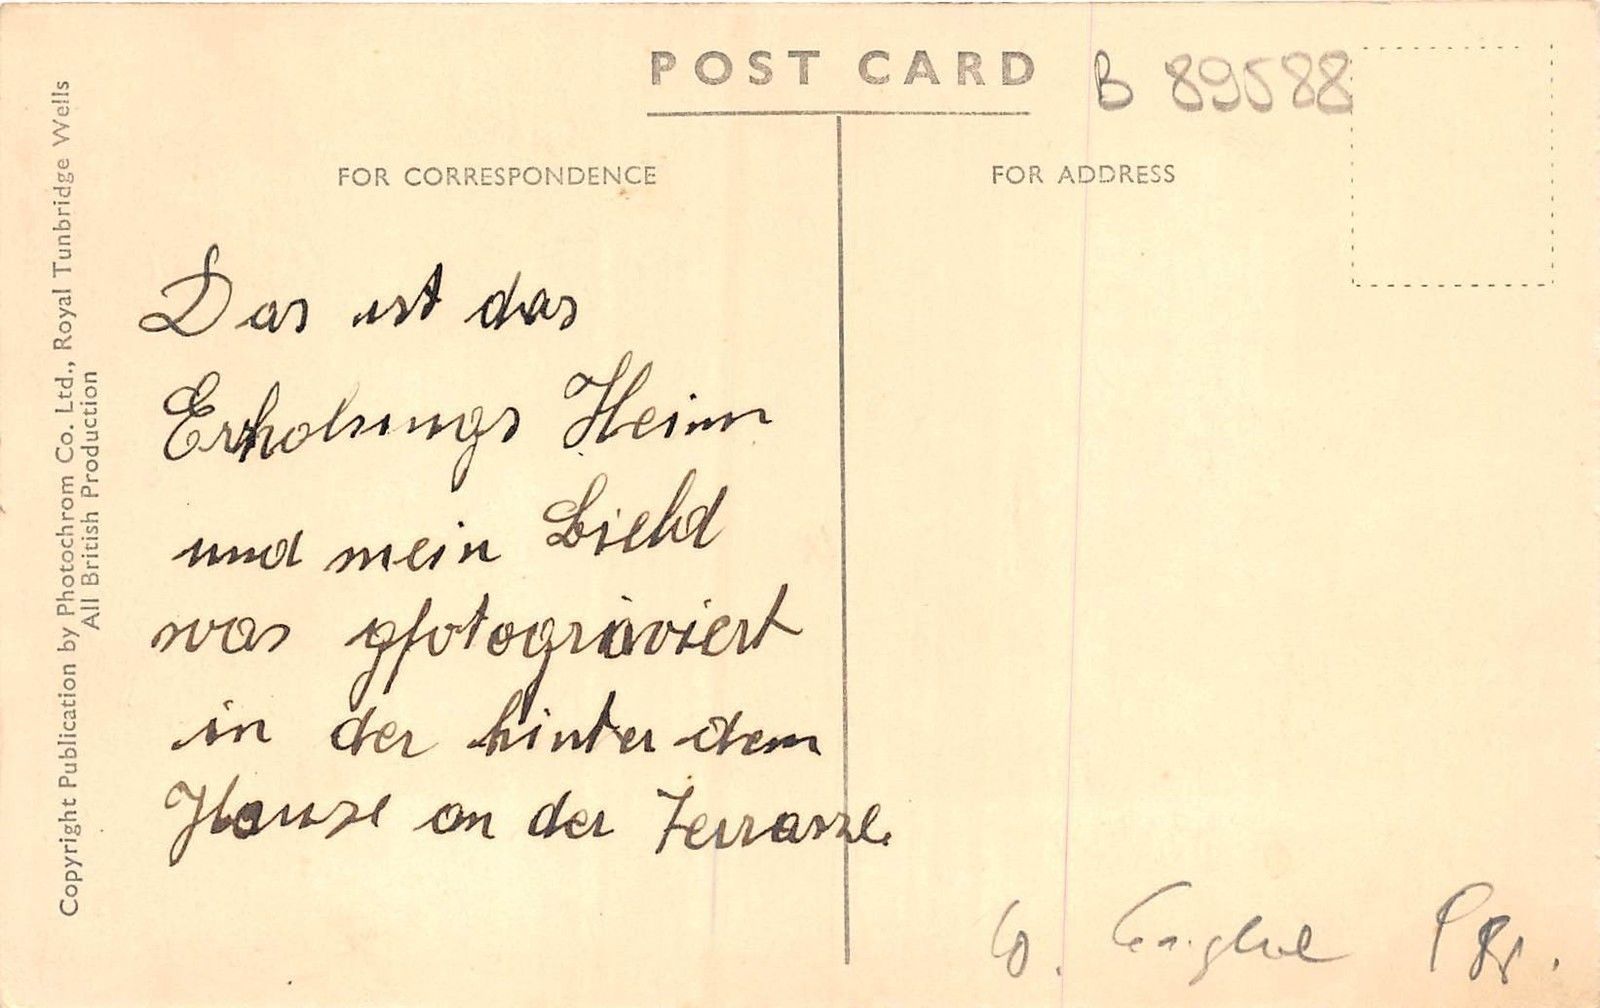 POST CARD
B 89588
FOR CORRESPONDENCE
FOR ADDRESS
Das ist das
Erholungs Heim
und mein Bield
was pfotograviert
in der hinter dem
Hause an der Terrasse.
Copyright Publication by Photochrom Co. Ltd., Royal Tunbridge Wells
All British Production